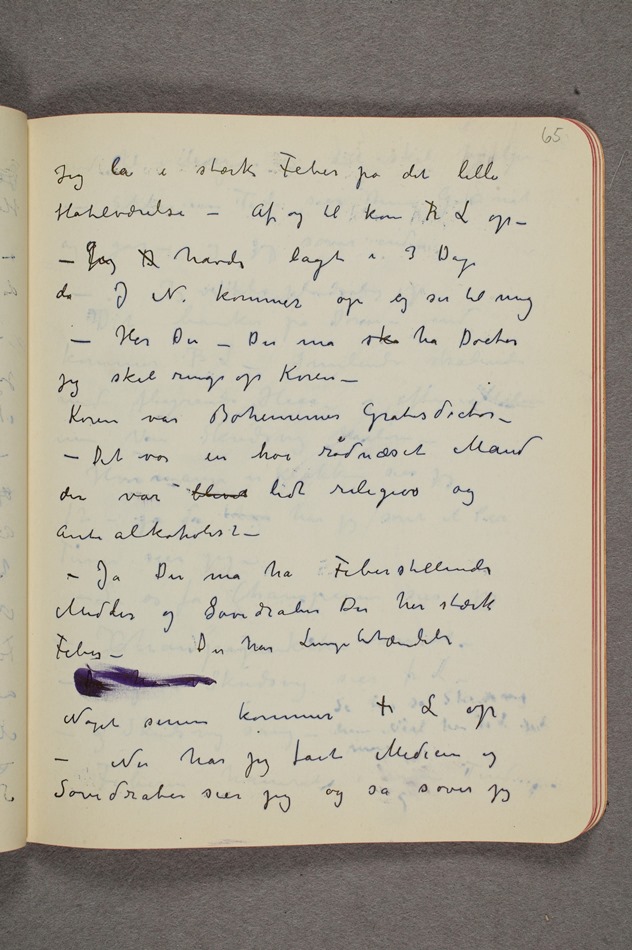 65
Jeg la i stærk Feber på det lille
Hotelværelse – Af og til kom L op –
– Jeg havde lagt i 3 Dage
da J N. kommer op og ser til mig
– Hør Du – Du må ska ha Doctor
jeg skal ringe op Koren –
Koren var Bohemernes Gratisdoctor –
– Det var en høi rødnæset Mand
der var blevet lidt religiøs og
antialkoholist –
– Ja Du må ha Feberstillende
Midler og Sovedraaber Du har stærk
Feber – Du har Lungebetændelse.
Noget senere kommer L op
– Nu har jeg fået Medicin og
Sovedraaber sier jeg og så sover jeg